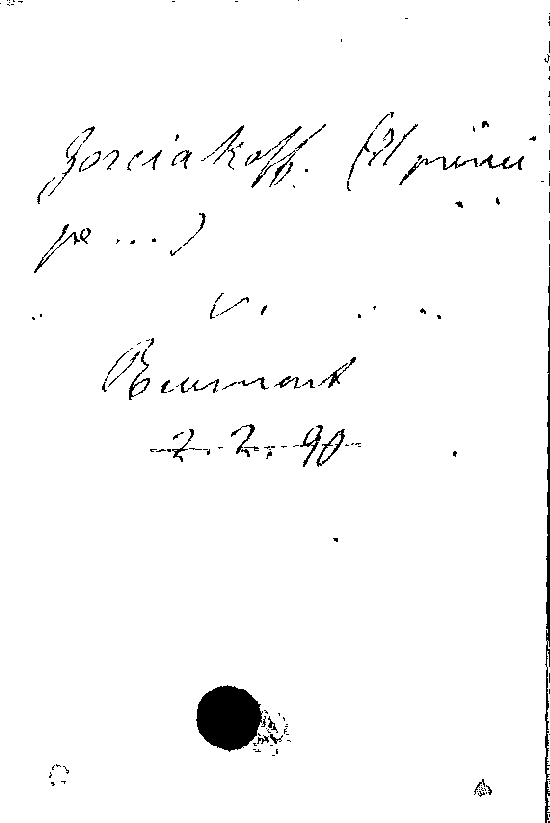 Gorciakoff. (Il princi
pe ...)
V.
Reumont
2. 2. 90